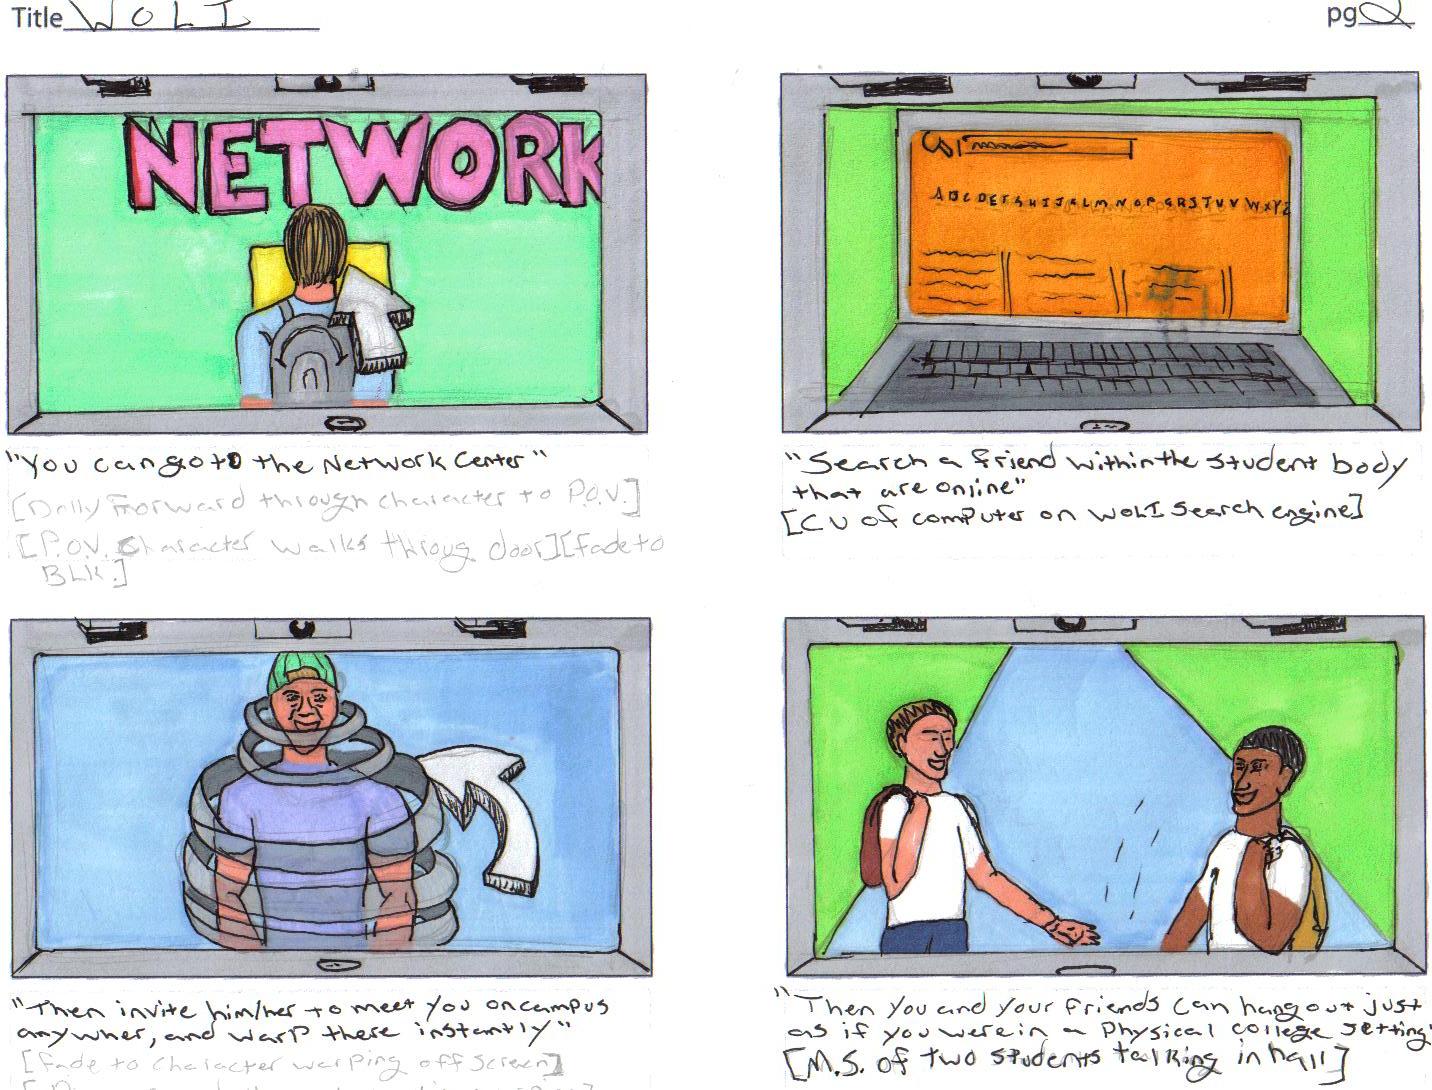 Title WOLI
pg 2
NETWORK
"You can go to the Network Center"
[Dolly Forward through character to P.O.V.]
[P.O.V. Character walks throug door][fade to
BLK.]
A B C D E F G H I J K L M N O P Q R S T U V W X Y Z
"Search a friend within the student body
that are online"
[CU of computer on WOLI search engine]
"Then invite him/her to meet you on campus
anywher, and warp there instantly"
[fade to character warping off screen]
"Then you and your friends can hang out just
as if you were in a Physical college setting"
[M.S. of two students talking in hall]